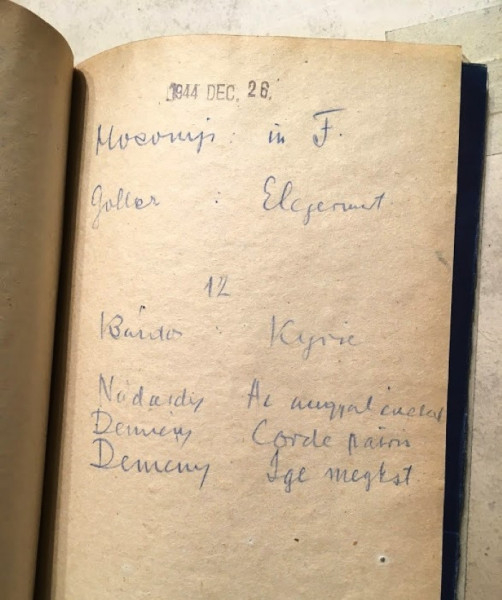 1944 DEC. 26.
Mosonyi : in F.
Goller : Elegerunt
12
Bárdos : Kyrie
Nádasdy Az angyal énekel
Demény Corde patris
Demény Ige megtest